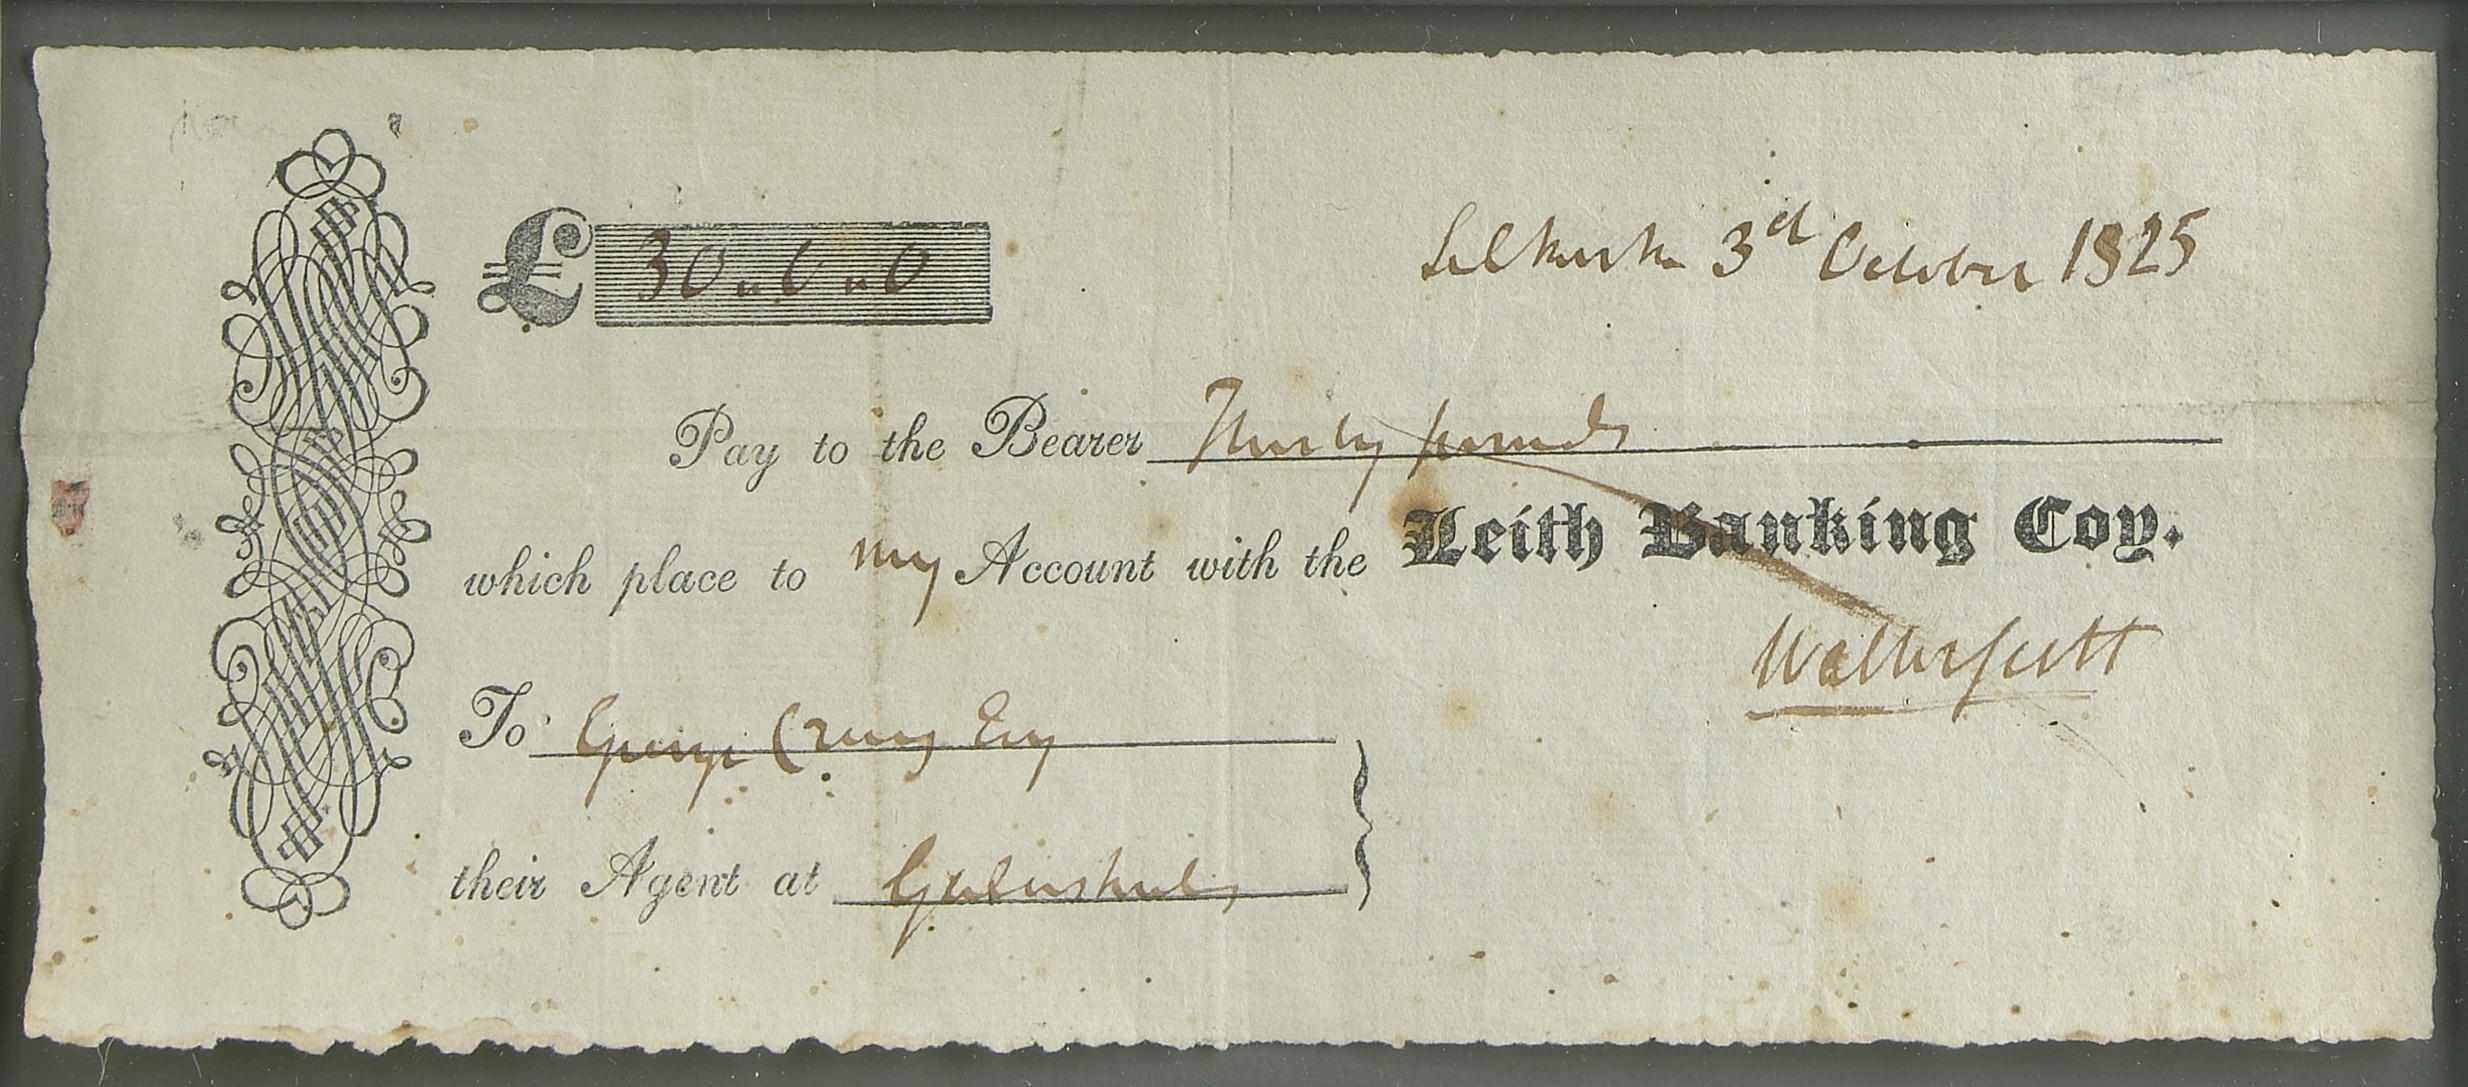 £ 30 „ 0 „ 0
Selkirk 3d October 1825
Pay to the Bearer Thirty pounds
which place to my Account with the Leith Banking Coy.
Walter Scott
To George Craig Esq
their Agent at Galashiels